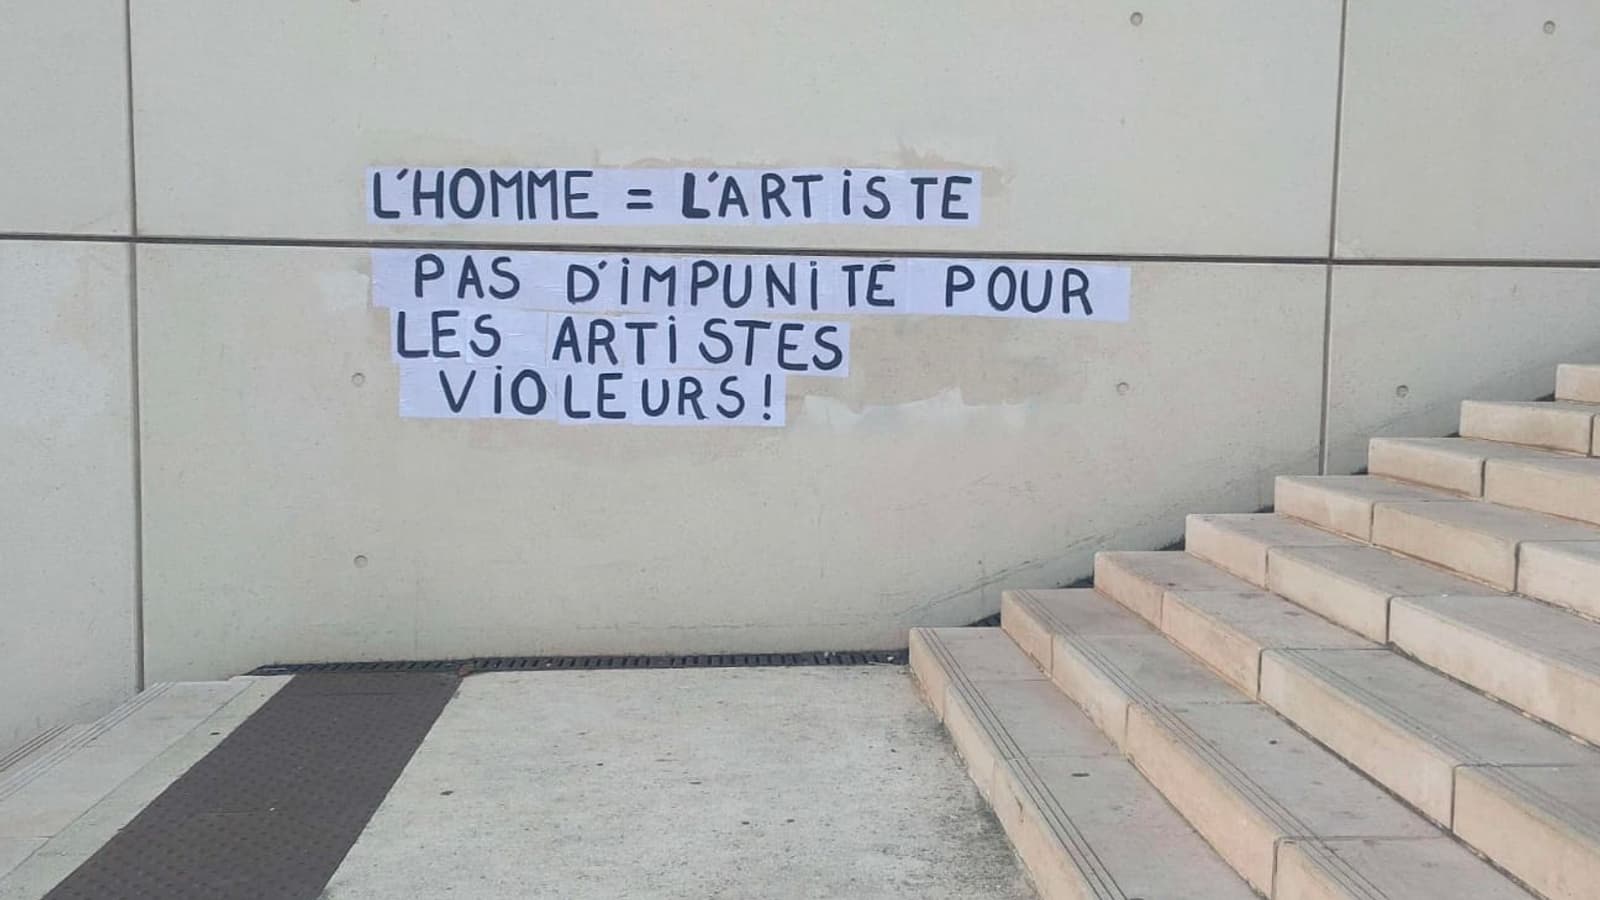 L'HOMME = L'ARTiSTE
PAS D'iMPUNiTÉ POUR
LES ARTiSTES
ViOLEURS!